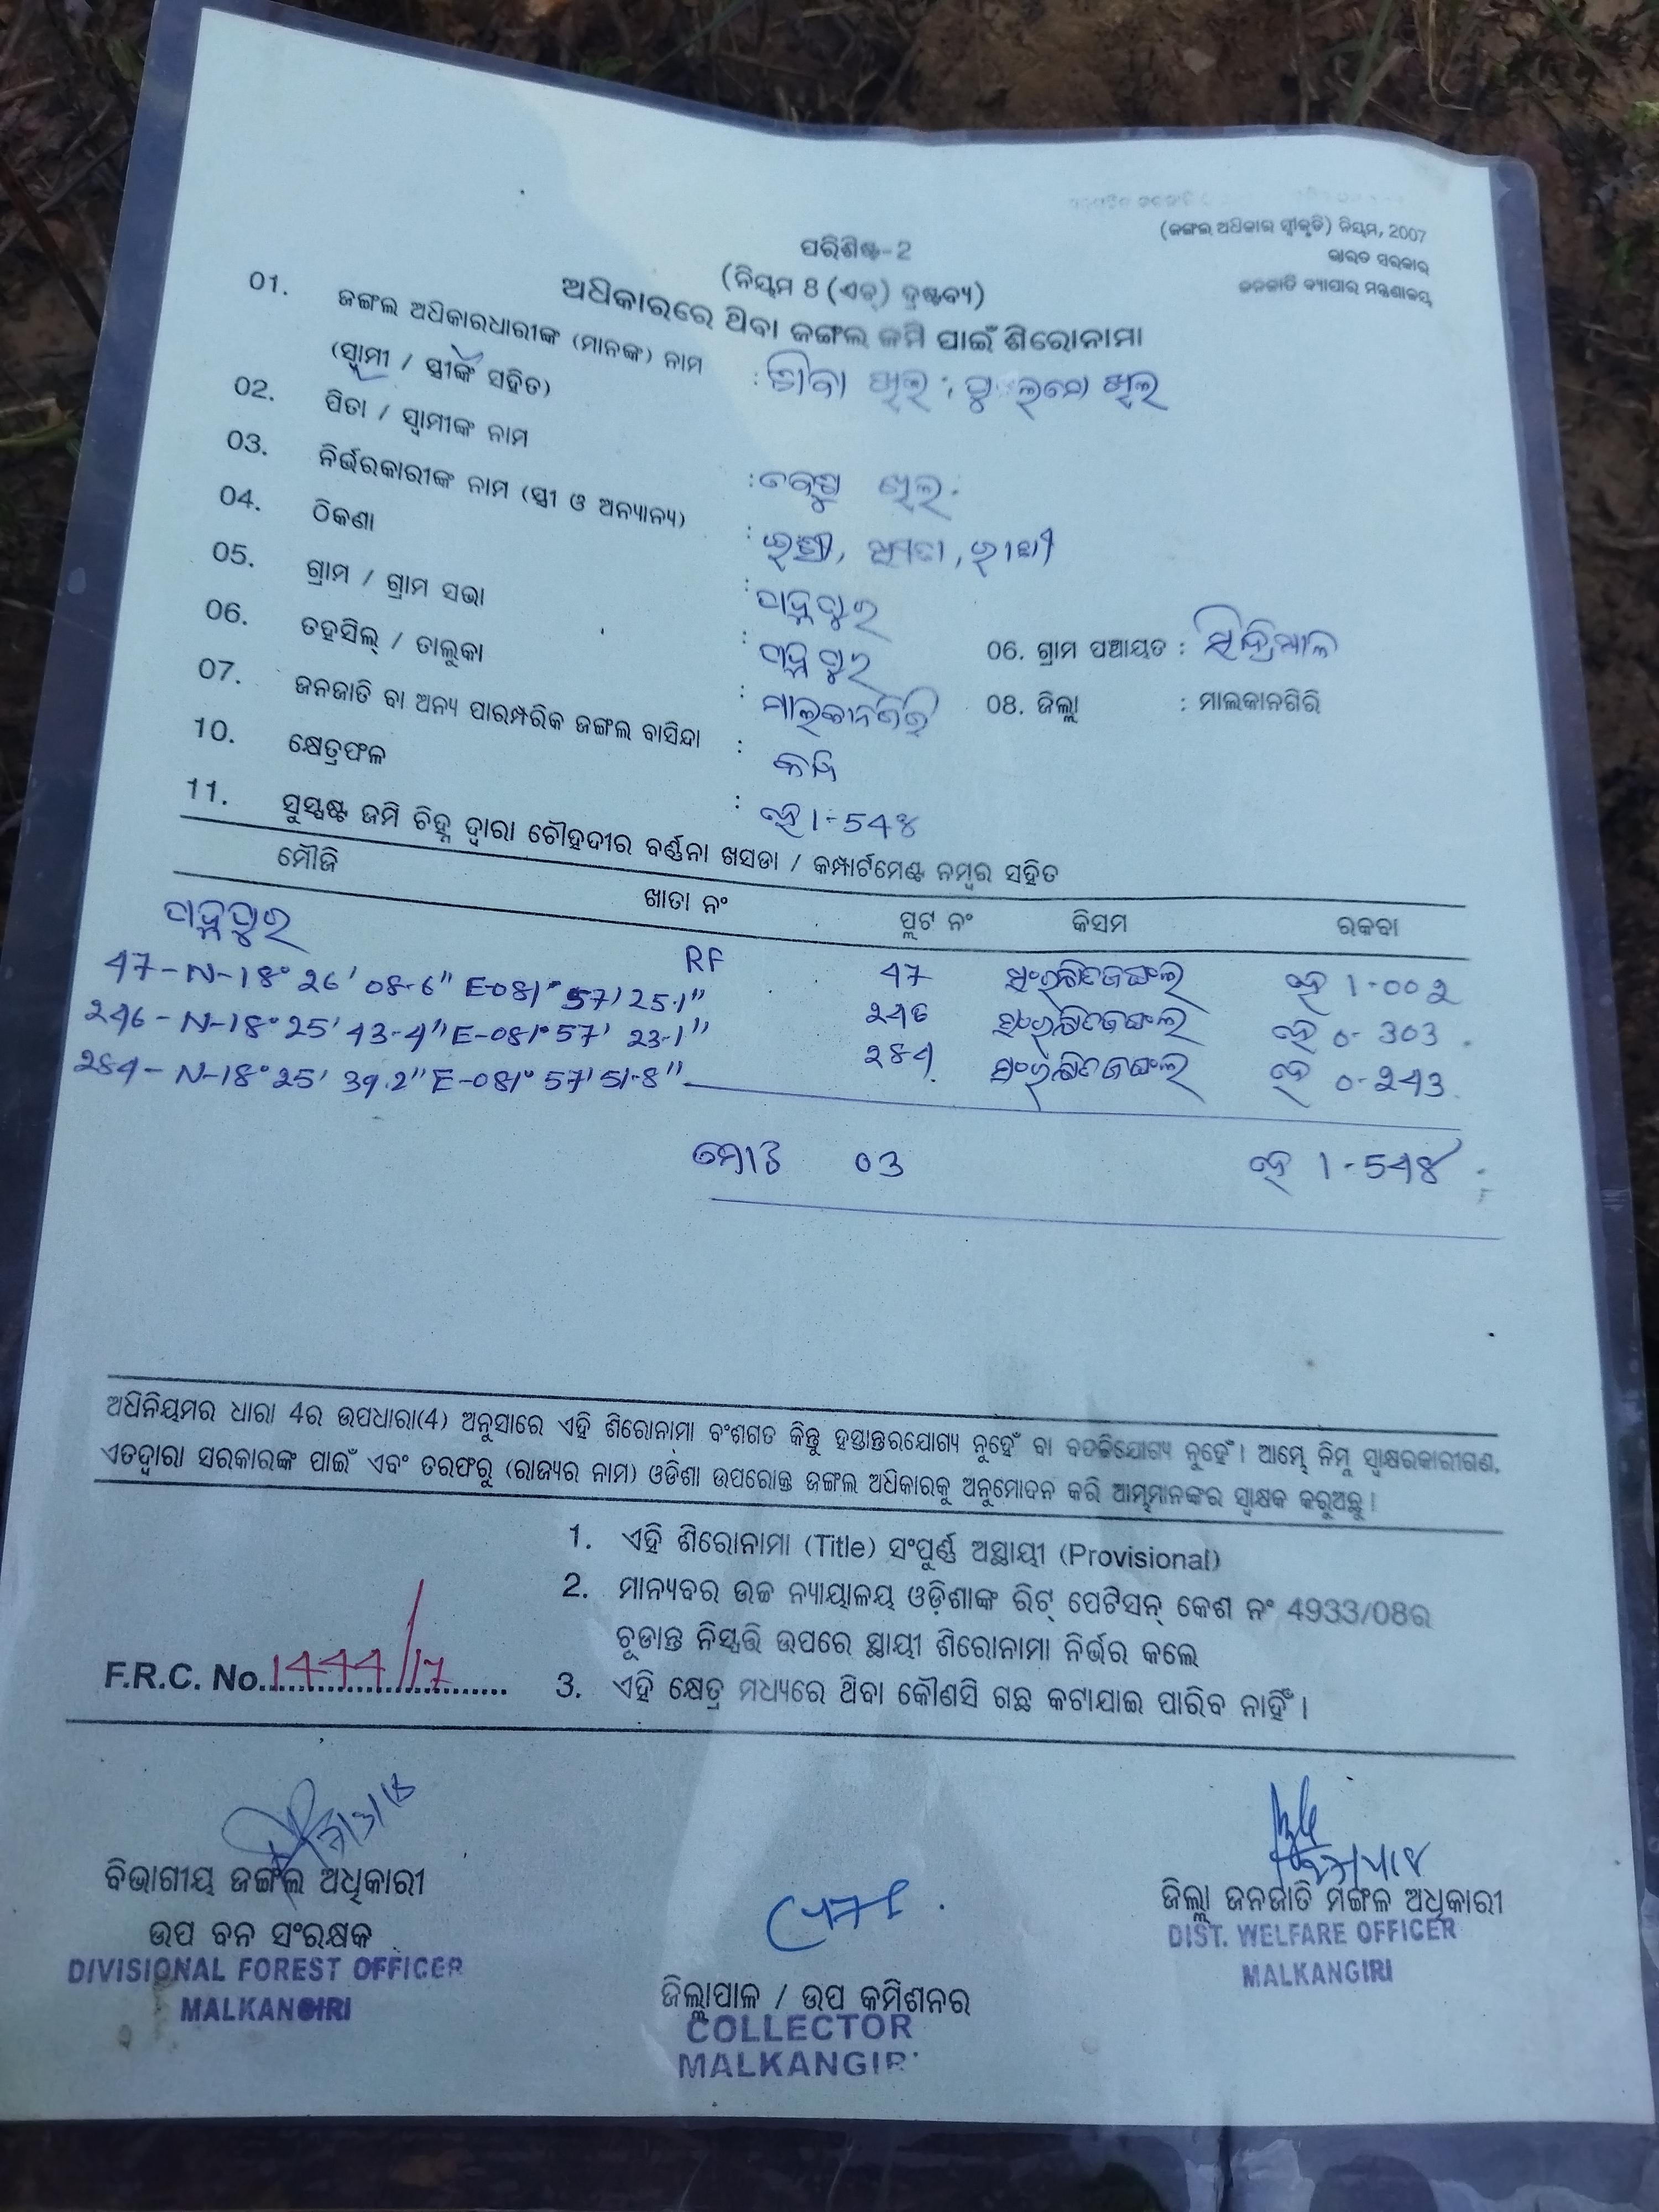 (ଜଙ୍ଗଲ ଅଧିକାର ସ୍ୱୀକୃତି) ନିୟମ, 2007
ଭାରତ ସରକାର
ଜନଜାତି ବ୍ୟାପାର ମନ୍ତ୍ରଣାଳୟ
ପରିଶିଷ୍ଟ-2
(ନିୟମ 8 (ଏଚ୍) ଦ୍ରଷ୍ଟବ୍ୟ)
ଅଧିକାରରେ ଥିବା ଜଙ୍ଗଲ ଜମି ପାଇଁ ଶିରୋନାମା
01. ଜଙ୍ଗଲ ଅଧିକାରଧାରୀଙ୍କ (ମାନଙ୍କ) ନାମ
(ସ୍ୱାମୀ / ସ୍ତ୍ରୀଙ୍କ ସହିତ) : ଖିଲ ; ଖିଲ
02. ପିତା / ସ୍ୱାମୀଙ୍କ ନାମ : ଖିଲ
03. ନିର୍ଭରକାରୀଙ୍କ ନାମ (ସ୍ତ୍ରୀ ଓ ଅନ୍ୟାନ୍ୟ) :
04. ଠିକଣା :
05. ଗ୍ରାମ / ଗ୍ରାମ ସଭା : 06. ଗ୍ରାମ ପଞ୍ଚାୟତ :
06. ତହସିଲ୍ / ତାଲୁକା : ମାଲକାନଗିରି 08. ଜିଲ୍ଲା : ମାଲକାନଗିରି
07. ଜନଜାତି ବା ଅନ୍ୟ ପାରମ୍ପରିକ ଜଙ୍ଗଲ ବାସିନ୍ଦା :
10. କ୍ଷେତ୍ରଫଳ : ହେ 1-54୪
11. ସୁସ୍ପଷ୍ଟ ଜମି ଚିହ୍ନ ଦ୍ୱାରା ଚୌହଦୀର ବର୍ଣ୍ଣନା ଖସଡା / କମ୍ପାର୍ଟମେଣ୍ଟ ନମ୍ବର ସହିତ
ମୌଜି ଖାତା ନଂ ପ୍ଲଟ ନଂ କିସମ ରକବା
RF
47-N-18° 26' 08.6" E-081° 57' 25.1" 47 ସଂରକ୍ଷିତ ଜଙ୍ଗଲ ହେ 1-002
246-N-18° 25' 43-4" E-081° 57' 23-1" 246 ସଂରକ୍ଷିତ ଜଙ୍ଗଲ ହେ 0-303
284-N-18° 25' 39.2" E-081° 57' 51-8" 284 ସଂରକ୍ଷିତ ଜଙ୍ଗଲ ହେ 0-243
ମୋଟ 03 ହେ 1-54୪
ଅଧିନିୟମର ଧାରା 4ର ଉପଧାରା(4) ଅନୁସାରେ ଏହି ଶିରୋନାମା ବଂଶଗତ କିନ୍ତୁ ହସ୍ତାନ୍ତରଯୋଗ୍ୟ ନୁହେଁ ବା ବଦଳିଯୋଗ୍ୟ ନୁହେଁ। ଆମ୍ଭେ ନିମ୍ନ ସ୍ୱାକ୍ଷରକାରୀଗଣ,
ଏତଦ୍ୱାରା ସରକାରଙ୍କ ପାଇଁ ଏବଂ ତରଫରୁ (ରାଜ୍ୟର ନାମ) ଓଡିଶା ଉପରୋକ୍ତ ଜଙ୍ଗଲ ଅଧିକାରକୁ ଅନୁମୋଦନ କରି ଆମ୍ଭମାନଙ୍କର ସ୍ୱାକ୍ଷକ କରୁଅଛୁ।
1. ଏହି ଶିରୋନାମା (Title) ସଂପୁର୍ଣ୍ଣ ଅସ୍ଥାୟୀ (Provisional)
2. ମାନ୍ୟବର ଉଚ୍ଚ ନ୍ୟାୟାଳୟ ଓଡ଼ିଶାଙ୍କ ରିଟ୍ ପେଟିସନ୍ କେଶ ନଂ 4933/08ର
ଚୂଡାନ୍ତ ନିସ୍ପତ୍ତି ଉପରେ ସ୍ଥାୟୀ ଶିରୋନାମା ନିର୍ଭର କଲେ
F.R.C. No. 1444/17
3. ଏହି କ୍ଷେତ୍ର ମଧ୍ୟରେ ଥିବା କୌଣସି ଗଛ କଟାଯାଇ ପାରିବ ନାହିଁ।
ବିଭାଗୀୟ ଜଙ୍ଗଲ ଅଧିକାରୀ
ଉପ ବନ ସଂରକ୍ଷକ
DIVISIONAL FOREST OFFICER
MALKANGIRI
ଜିଲ୍ଲାପାଳ / ଉପ କମିଶନର
COLLECTOR
MALKANGIRI
ଜିଲ୍ଲା ଜନଜାତି ମଙ୍ଗଳ ଅଧିକାରୀ
DIST. WELFARE OFFICER
MALKANGIRI